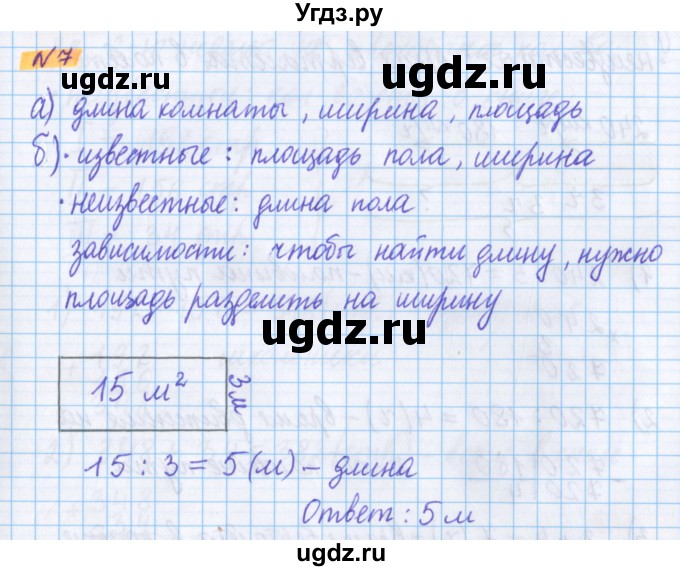 Угдз.ру
N7
ugdz.ru ugdz.ru
а) длина комнаты, ширина, площадь
б) • известные: площадь пола, ширина
• неизвестные: длина пола
ugdz.ru
зависимости: чтобы найти длину, нужно
площадь разделить на ширину
ugdz.ru
15 м² 3м
15 : 3 = 5 (м) – длина
Ответ: 5 м
ugdz.ru ugdz.ru
ugdz.ru